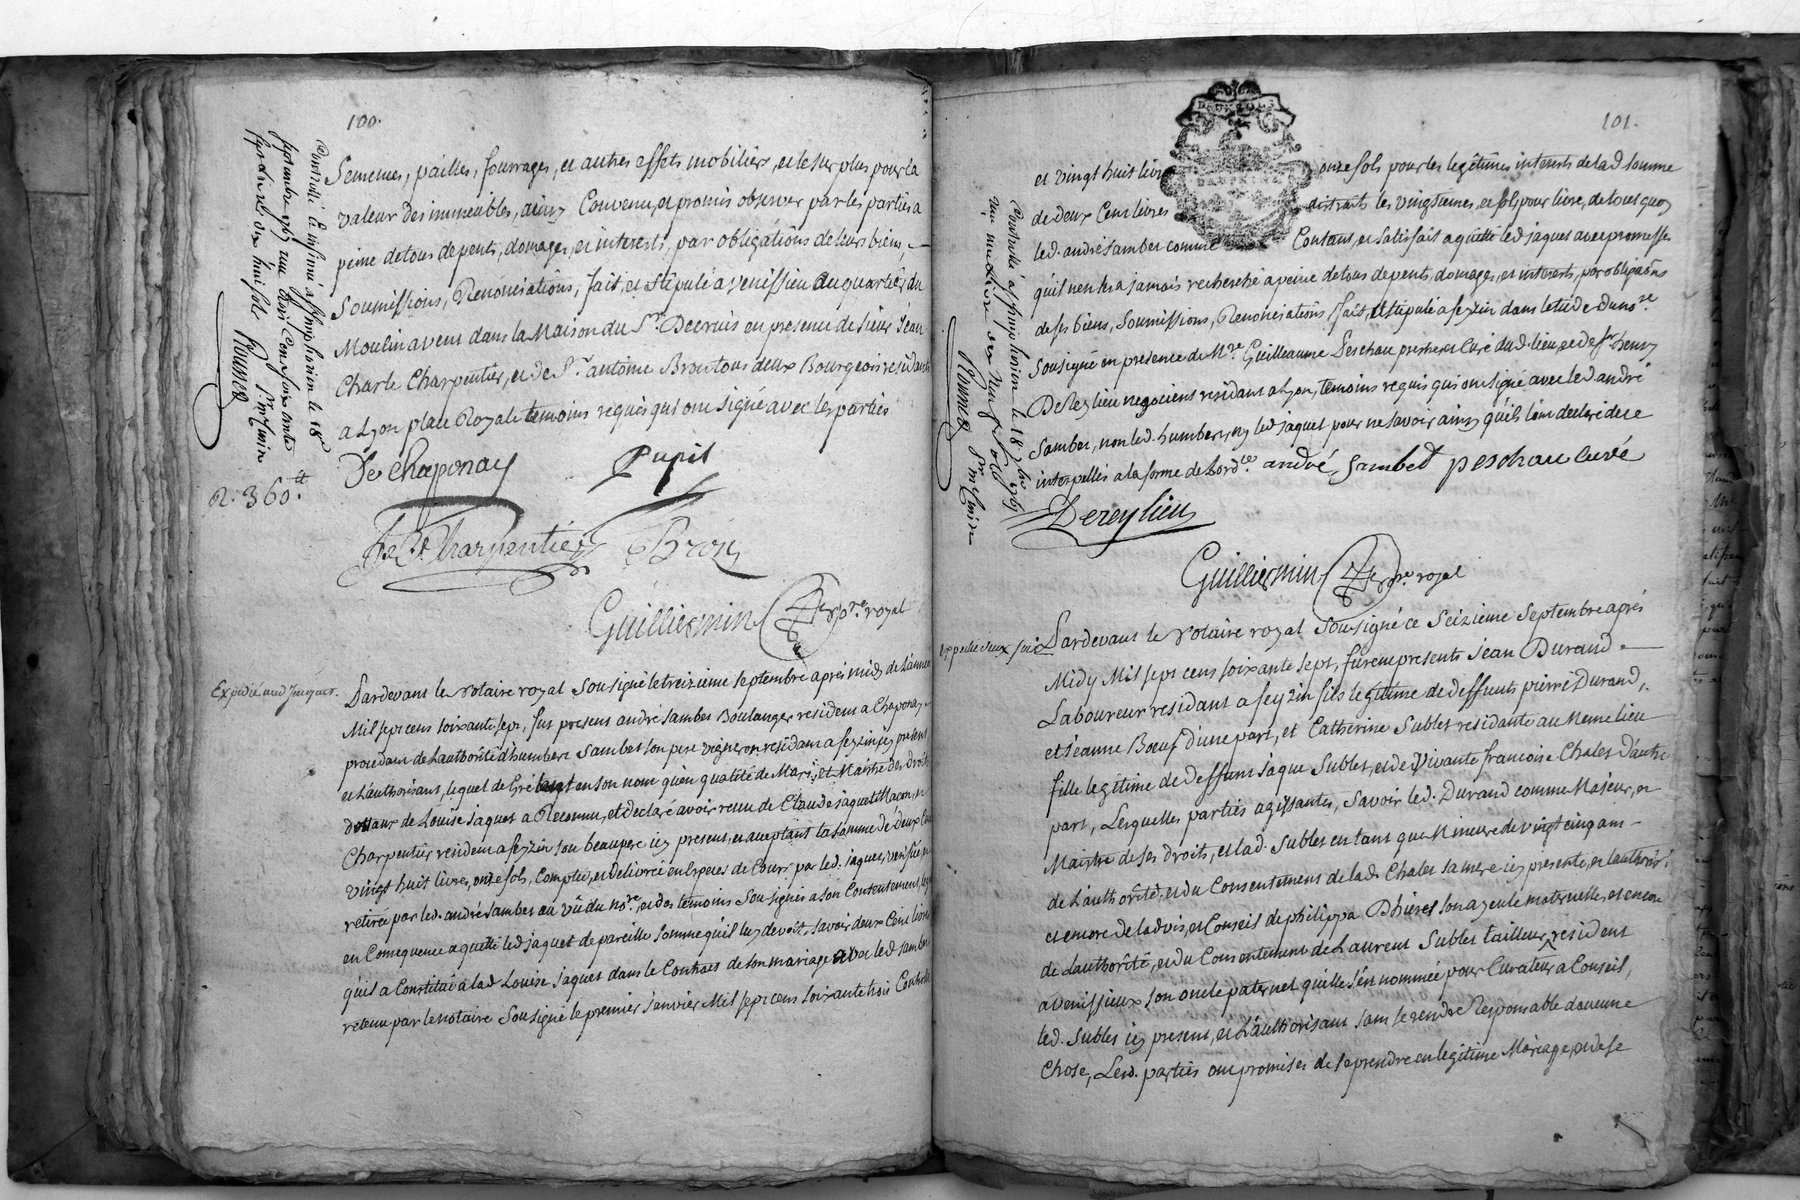 100.
Semences, pailles, fourrages, et autres effets mobiliers, et le surplus pour la
valeur des immeubles, ainsy Convenu, et promis observer par les parties a
peine de tous depents, domages, et interests, par obligations de leurs biens,
Soumissions, Renonciations, fait, et Stipulé a venissieu au quartier du
Moulin a vent dans la Maison du Sr. Decruis en presence de Sieur Jean
Charle Charpentier, et de Sr. antoine Bron tous deux Bourgeois residants
a Lyon place Royale temoins requis qui ont signé avec les parties
De Chaponay Pupil
R. 360.tt
Je. Ch Charpentier Bron
Guilliermin Nre royal
Controllé et insinué a st simphorien le 18e
septembre 1767 reçu
Rounes
Expedié aud jacques.
Pardevant le Notaire royal Sousigné le treizieme septembre après midy de L'année
Mil sept cens soixante sept, fut present andré sambet Boulanger resident a Chaponay
procedant de L'authorité d'humbert Sambet son pere vigneron residant a feyzin icy present
et L'authorisant, lequel de Gré tant en son nom qu'en qualité de Mary, et Maistre des droits
dotaux de Louise jaquet a Reconnu, et declaré avoir reçu de Claude jaquet Macon, et
Charpentier resident a feyzin son beaupere icy present, et acceptant la somme de deux Cens
vingt huit livres, onze sols, Comptée, et delivrée en Especes de Cours par led. jaquet, verifiée, et
retirée par led. andré Sambet au vû du nore., et des temoins Sousignés a son Contentement,
en Consequence a quitté led jaquet de pareille somme qu'il luy devoit, savoir deux Cens livres
qu'il a Constitué a lad Louise jaquet dans le Contract de son mariage avec led sambet
retenu par le notaire Sousigné le premier janvier Mil sept cens soixante trois Controllé
101.
et vingt huit livres onze sols pour les legitimes interests de lad somme
de deux Cens livres distraits les vingtiemes, et sols pour livre, de tout quoy
led. andré sambet comme Contant, et satisfait a quitté led jaquet avec promesses
qu'il n'en sera jamais recherché a peine de tous depents, domages, et interests, par obligations
de ses biens, Soumissions, Renonciations, fait, et Stipulé a feyzin dans l'etude du nore.
Sousigné en presence de Mre. Guilleaume Peschau prestre et Curé dud. lieu, et de Sr henry
DeReylieu negociens residant a Lyon, temoins requis qui ont signé avec led andré
Sambet, non led. humbert, ny led jaquet pour ne savoir ainsy qu'ils l'ont declaré de ce
interpellés a la forme de Lordce. andré Sambet peschau curé
Dereylieu
Guilliermin Nre royal
Controllé a st simphorien le 18 7bre 1767
Rounes
Pardevant le Notaire royal Sousigné ce Seizieme Septembre après
Midy Mil sept cens soixante sept, furent presents Jean Durand
Laboureur residant a feyzin fils legitime de deffunts pierre Durand,
et Jeanne Bœuf d'une part, et Catherine Sublet residante au Meme lieu
fille legitime de deffunt jaque Sublet, et de Vivante francoise Chalet d'autre
part, Lesquelles parties agissantes, Savoir led. Durand comme Majeur, et
Maistre de ses droits, et lad. Sublet en tant que Mineure de vingt cinq ans
de L'authorité, et du Consentement de lad. Chalet sa mere icy presente, et l'authorist.
et encore de l'advis, et Conseil de philippa Phieres son ayeule maternelle, et encore
de L'authorité, et du Consentement de Laurent Sublet tailleur, resident
a venissieux son oncle paternel qu'elle s'en nommée pour Curateur a Conseil,
led. Sublet icy present, et L'authorisant sans se rendre Responsable d'aucune
Chose, Lesd. parties ont promises de se prendre en legitime Mariage, et de se